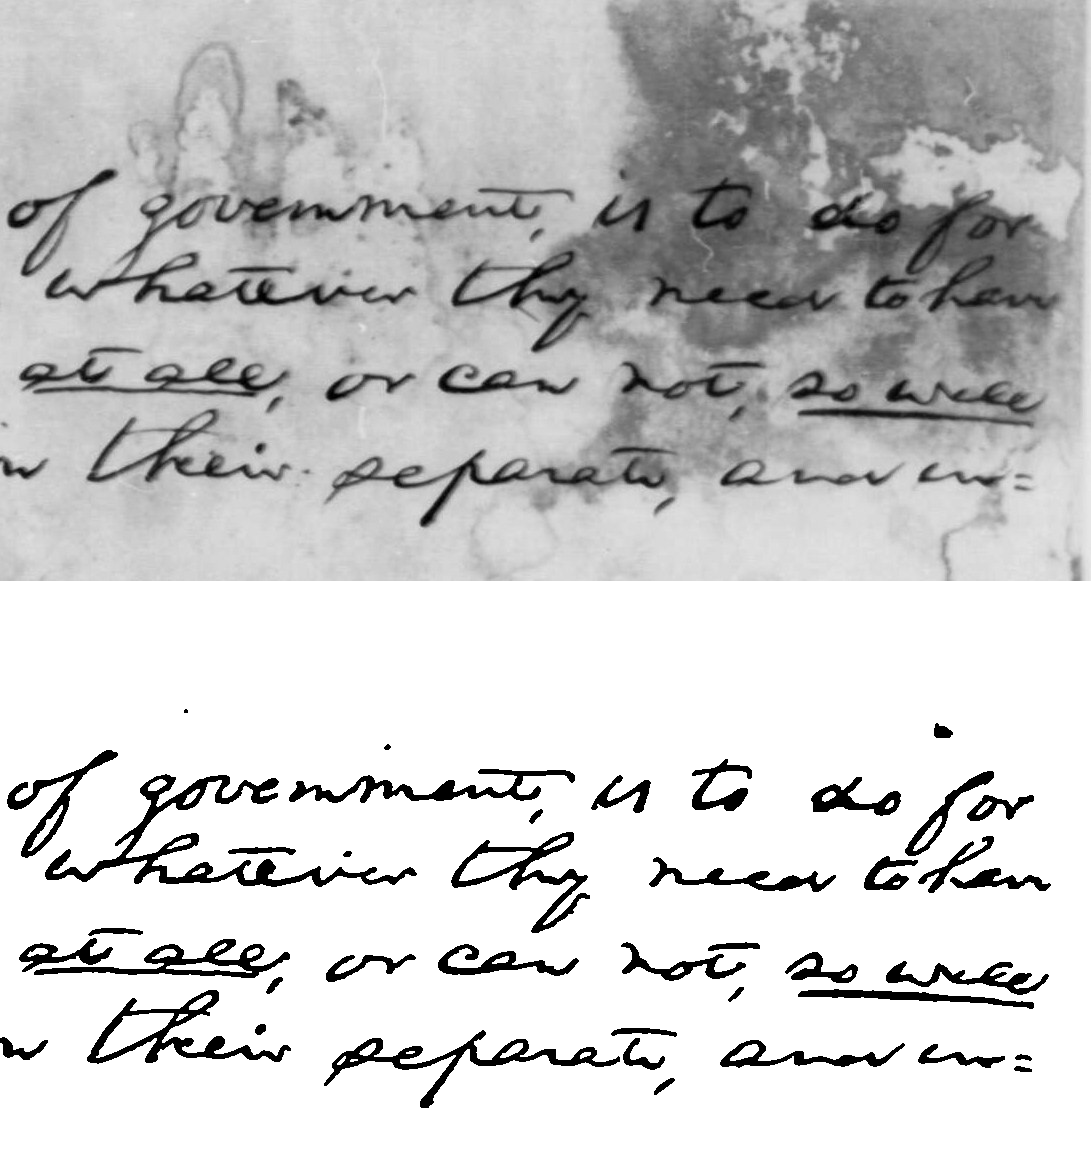 of government, is to do for
whatever they need to have
at all, or can not, so well
in their separate, and in=
of government, is to do for
whatever they need to have
at all, or can not, so well
in their separate, and in=